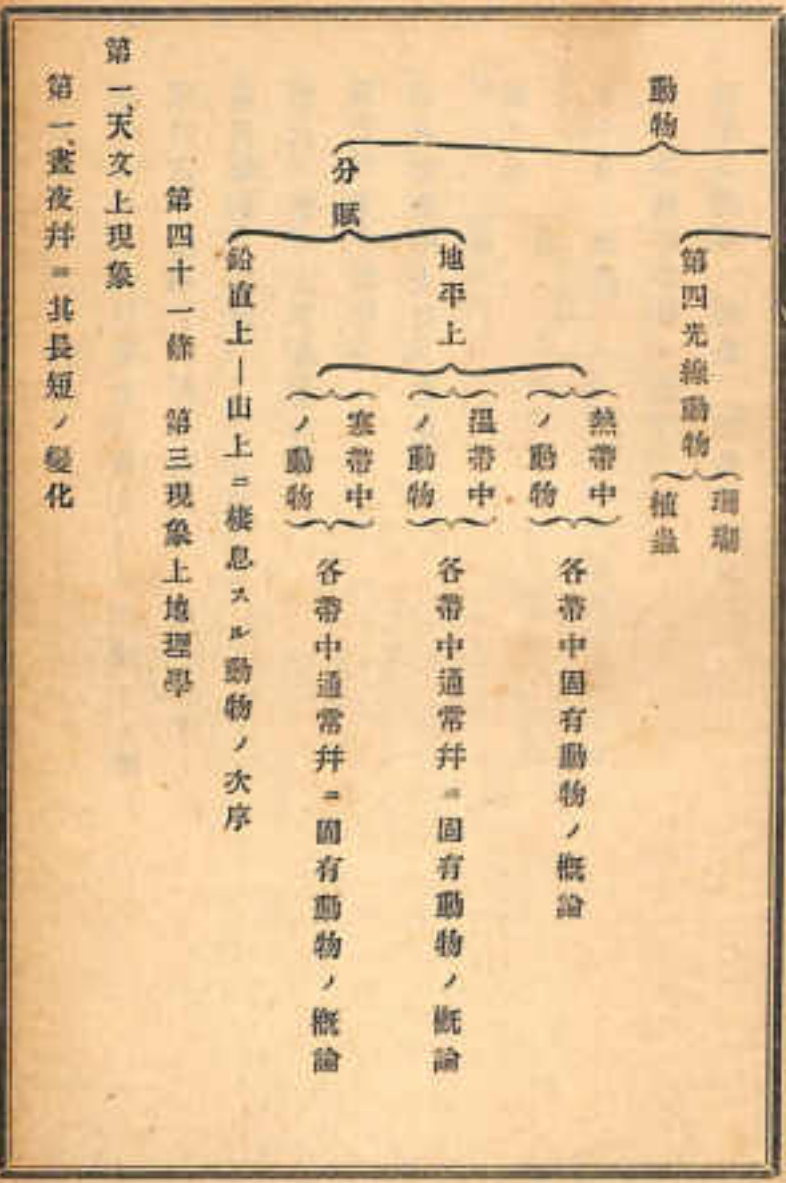 動物
第四光線動物
珊瑚
植蟲
分賦
地平上
熱帶中
ノ動物
各帶中固有動物ノ概論
溫帶中
ノ動物
各帶中通常幷ニ固有動物ノ概論
寒帶中
ノ動物
各帶中通常幷ニ固有動物ノ概論
鉛直上―山上ニ棲息スル動物ノ次序
第四十一條 第三現象上地理學
第一、天文上現象
第一、晝夜幷ニ其長短ノ變化